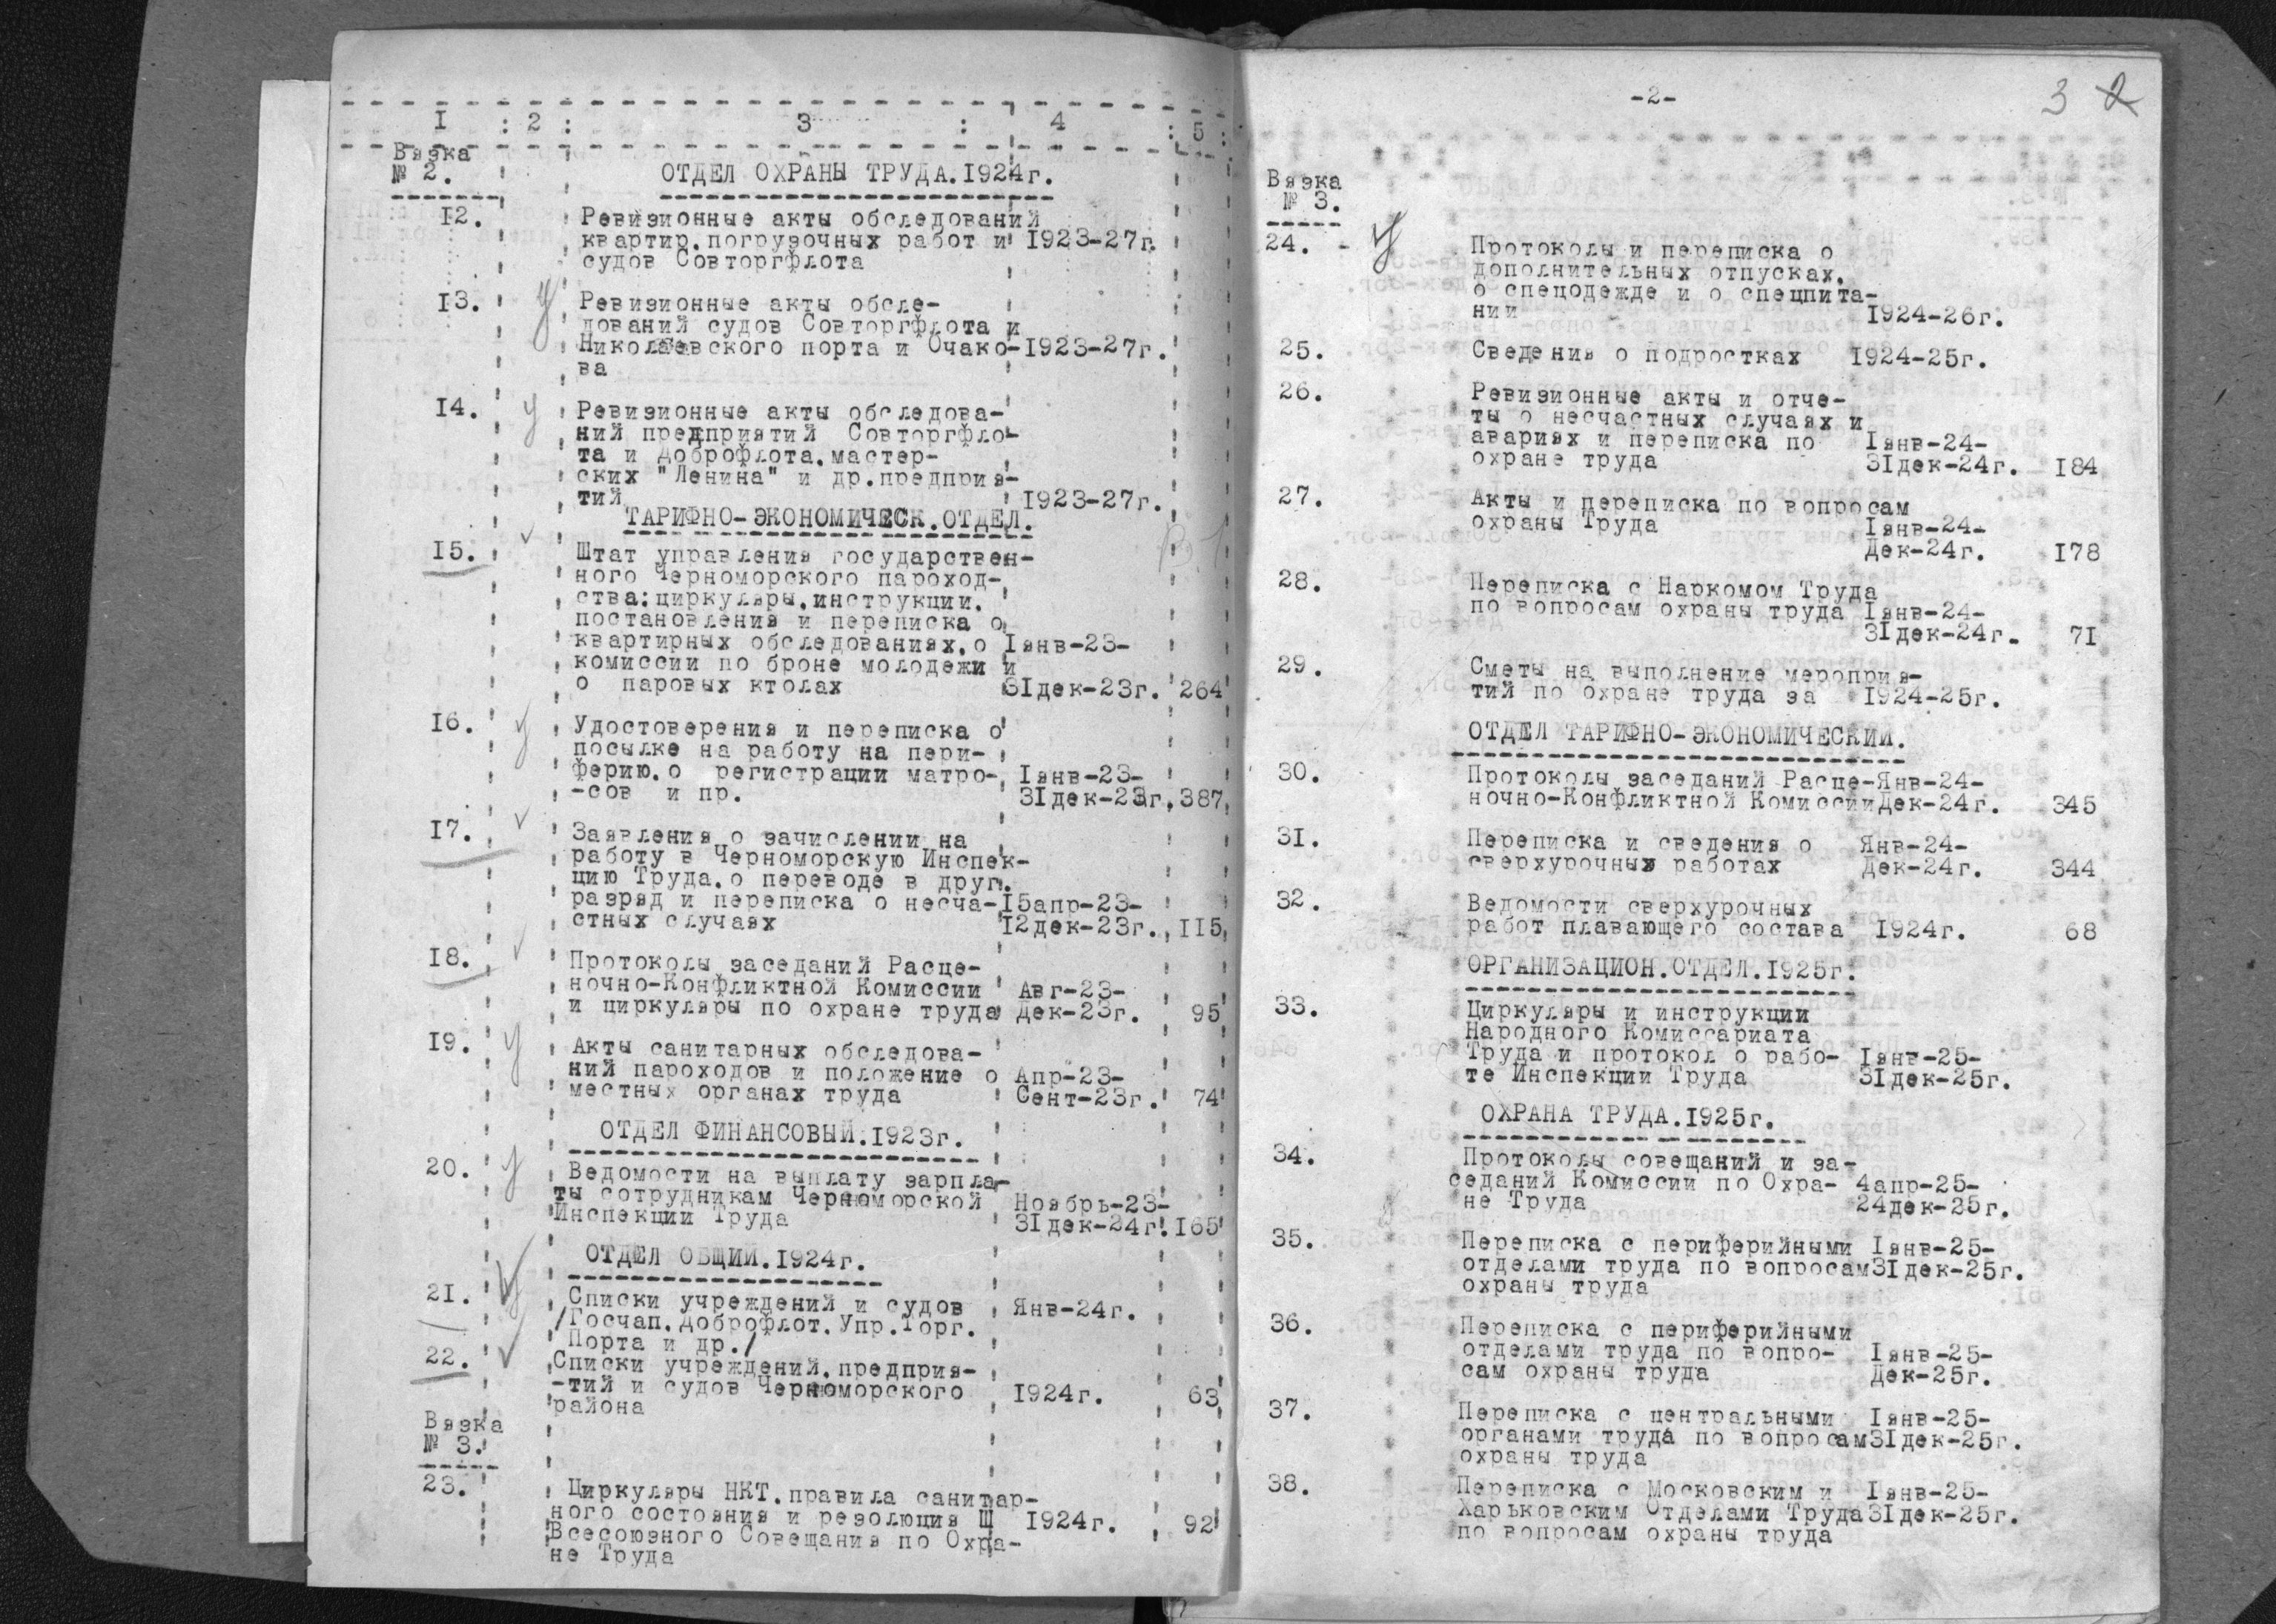 I : 2 : 3 : 4 : 5 :
Вязка
№ 2.
ОТДЕЛ ОХРАНЫ ТРУДА.I924г.
I2. Ревизионные акты обследований
квартир.погрузочных работ и I923-27г.
судов Совторгфлота
I3. Ревизионные акты обсле-
дований судов Совторгфлота и
Николаевского порта и Очако-I923-27г.
ва
I4. Ревизионные акты обследова-
ний предприятий Совторгфло-
та и Доброфлота.мастер-
ских "Ленина" и др.предприя-
тий I923-27г.
ТАРИФНО-ЭКОНОМИЧЕСК.ОТДЕЛ.
I5. Штат управления государствен-
ного Черноморского пароход-
ства:циркуляры.инструкции.
постановления и переписка о
квартирных обследованиях.о Iянв-23-
комиссии по броне молодежи и
о паровых ктолах 3Iдек-23г. 264
I6. Удостоверения и переписка о
посылке на работу на пери-
ферию.о регистрации матро- Iянв-23-
-сов и пр. 3Iдек-23г. 387
I7. Заявления о зачислении на
работу в Черноморскую Инспек-
цию Труда.о переводе в друг.
разряд и переписка о несча-I5апр-23-
стных случаях I2дек-23г. II5
I8. Протоколы заседаний Расце-
ночно-Конфликтной Комиссии Авг-23-
и циркуляры по охране труда Дек-23г. 95
I9. Акты санитарных обследова-
ний пароходов и положение о Апр-23-
местных органах труда Сент-23г. 74
ОТДЕЛ ФИНАНСОВЫЙ.I923г.
20. Ведомости на выплату зарпла-
ты сотрудникам Черноморской Ноябрь-23-
Инспекции Труда 3Iдек-24г. I65
ОТДЕЛ ОБЩИЙ.I924г.
2I. Списки учреждений и судов Янв-24г.
/Госчап.Доброфлот.Упр.Торг.
Порта и др./
22. Списки учреждений.предприя-
-тий и судов Черноморского I924г. 63
района
Вязка
№ 3.
23. Циркуляры НКТ.правила санитар-
ного состояния и резолюция Ш I924г. 92
Всесоюзного Совещания по Охра-
не Труда
-2-
3 2
Вязка
№ 3.
24. - Протоколы и переписка о
дополнительных отпусках.
о спецодежде и о спецпита-
нии I924-26г.
25. Сведения о подростках I924-25г.
26. Ревизионные акты и отче-
ты о несчастных случаях и
авариях и переписка по Iянв-24-
охране труда 3Iдек-24г. I84
27. Акты и переписка по вопросам
охраны Труда Iянв-24-
Дек-24г. I78
28. Переписка с Наркомом Труда
по вопросам охраны труда Iянв-24-
3Iдек-24г. 7I
29. Сметы на выполнение мероприя-
тий по охране труда за I924-25г.
ОТДЕЛ ТАРИФНО-ЭКОНОМИЧЕСКИЙ.
30. Протоколы заседаний Расце-Янв-24-
ночно-Конфликтной КомиссииДек-24г. 345
3I. Переписка и сведения о Янв-24-
сверхурочных работах Дек-24г. 344
32. Ведомости сверхурочных
работ плавающего состава I924г. 68
ОРГАНИЗАЦИОН.ОТДЕЛ.I925г.
33. Циркуляры и инструкции
Народного Комиссариата
Труда и протокол о рабо- Iянв-25-
те Инспекции Труда 3Iдек-25г.
ОХРАНА ТРУДА.I925г.
34. Протоколы совещаний и за-
седаний Комиссии по Охра- 4апр-25-
не Труда 24дек-25г.
35. Переписка с периферийными Iянв-25-
отделами труда по вопросам3Iдек-25г.
охраны труда
36. Переписка с периферийными
отделами труда по вопро- Iянв-25-
сам охраны труда Дек-25г.
37. Переписка с центральными Iянв-25-
органами труда по вопросам3Iдек-25г.
охраны труда
38. Переписка с Московским и Iянв-25-
Харьковским Отделами Труда3Iдек-25г.
по вопросам охраны труда